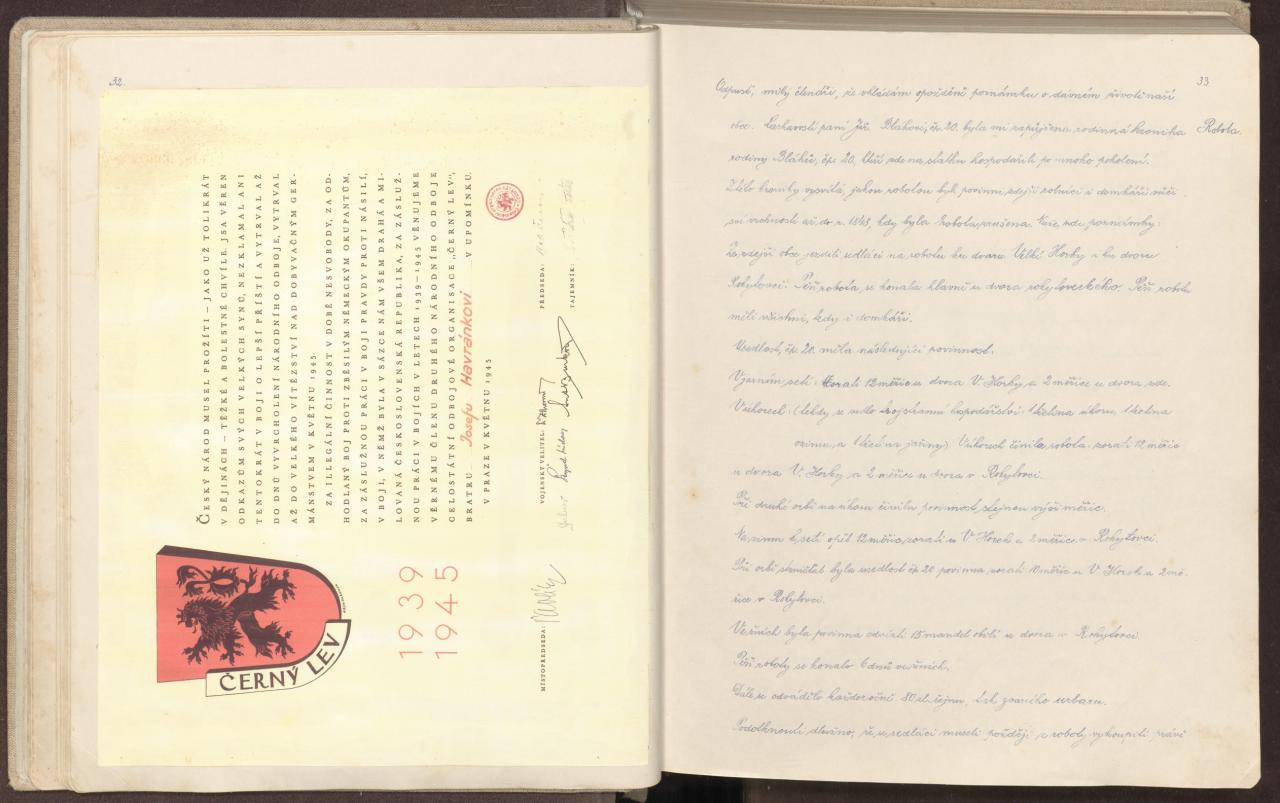 32.
ČERNÝ LEV
1939
1945
ČESKÝ NÁROD MUSEL PROŽÍTI – JAKO UŽ TOLIKRÁT
V DĚJINÁCH – TĚŽKÉ A BOLESTNÉ CHVÍLE. JSA VĚREN
ODKAZŮM SVÝCH VELKÝCH SYNŮ, NEZKLAMAL ANI
TENTOKRÁT V BOJI O LEPŠÍ PŘÍŠTÍ A VYTRVAL AŽ
DO DNŮ VYVRCHOLENÍ NÁRODNÍHO ODBOJE, VYTRVAL
AŽ DO VELKÉHO VÍTĚZSTVÍ NAD DOBYVAČNÝM GER-
MÁNSTVEM V KVĚTNU 1945.
ZA ILLEGÁLNÍ ČINNOST V DOBĚ NESVOBODY, ZA OD-
HODLANÝ BOJ PROTI ZBĚSILÝM NĚMECKÝM OKUPANTŮM,
ZA ZÁSLUŽNOU PRÁCI V BOJI PRAVDY PROTI NÁSILÍ,
V BOJI, V NĚMŽ BYLA V SÁZCE NÁM VŠEM DRAHÁ A MI-
LOVANÁ ČESKOSLOVENSKÁ REPUBLIKA, ZA ZÁSLUŽ-
NOU PRÁCI V BOJÍCH V LETECH 1939–1945 VĚNUJEME
VĚRNÉMU ČLENU DRUHÉHO NÁRODNÍHO ODBOJE
CELOSTÁTNÍ ODBOJOVÉ ORGANISACE „ČERNÝ LEV",
BRATRU Josefu Havránkovi V UPOMÍNKU.
V PRAZE V KVĚTNU 1945
MÍSTOPŘEDSEDA: VOJENSKÝ VELITEL: PŘEDSEDA:
TAJEMNÍK:
33.
Odpusť, milý čtenáři, že vkládám opožděně poznámku o dávném životě naší
obce. Laskavostí paní Bláhové, čp. 20. byla mi zapůjčena rodinná kronika
Robota.
rodiny Bláhů, čp. 20, kteří zde na statku hospodařili po mnoho pokolení.
Z této kroniky vysvítá, jakou robotou byli povinni zdejší rolníci i domkáři vůči
své vrchnosti až do r. 1848, kdy byla robota zrušena. Nuže, zde poznámky:
Ze zdejší obce jezdili sedláci na robotu ku dvoru Velké Horky a ku dvoru
Rokytovci. Pěší robota se konala hlavně u dvora rokytoveckého. Pěší robotu
měli všichni, tedy i domkáři.
Usedlost čp. 20. měla následující povinnost.
V jarním setí zorati 12 měřic u dvora V. Horky, a 2 měřice u dvora zde.
V úhorech: (tehdy se vedlo trojstranné hospodářství: 1 třetina úhoru, 1 třetina
ozimu, a 1 třetina jařiny) V úhorech činila robota: zorati 12 měřic
u dvora V. Horky a 2 měřice u dvora v Rokytovci.
Při druhé orbě na úhoru činila povinnost stejnou výši měřic.
Na zimu k setí opět 12 měřic zorati u V. Horek a 2 měřice v Rokytovci.
Při orbě strnišťat byla usedlost čp. 20 povinna zorati 10 měřic u V. Horek a 2 mě-
řice v Rokytovci.
Ve žních byla povinna odvézti 15 mandel obilí u dvora v Rokytovci.
Pěší roboty se konalo 6 dnů ve žních.
Dále se odvádělo každoročně 80 zl. tak zvaného urbaru.
Podotknouti dlužno, že se sedláci museli později z roboty vykoupiti právě